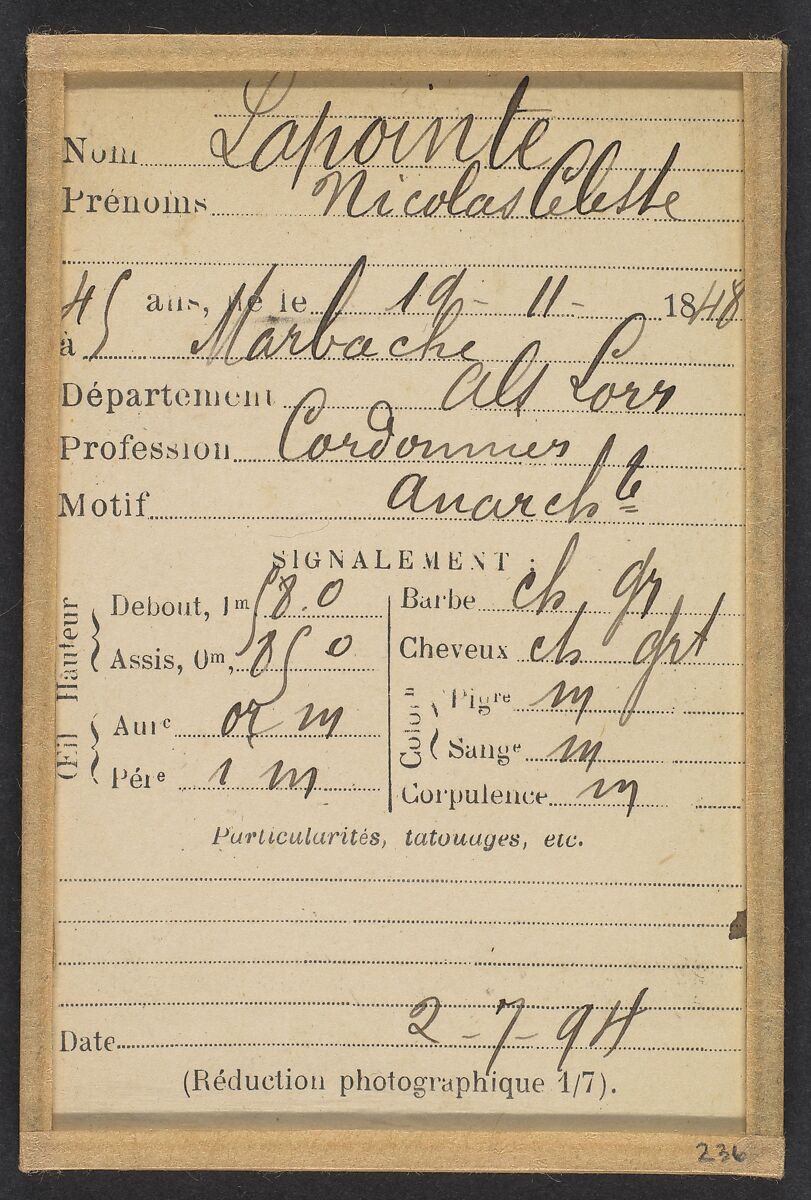 Nom Lapointe
Prénoms Nicolas Celeste
45 ans, né le 19 - 11 - 1848
à Marbache
Département Als Lorr
Profession Cordonnier
Motif anarchte
SIGNALEMENT :
Hauteur
Debout, 1m 58.0
Assis, 0m, 85 0
Œil
Aure or m
Pére 1 m
Barbe ch gr
Cheveux ch grt
Colon
Pigre m
Sange m
Corpulence m
Particularités, tatouages, etc.
Date 2 - 7 - 94
(Réduction photographique 1/7).
236